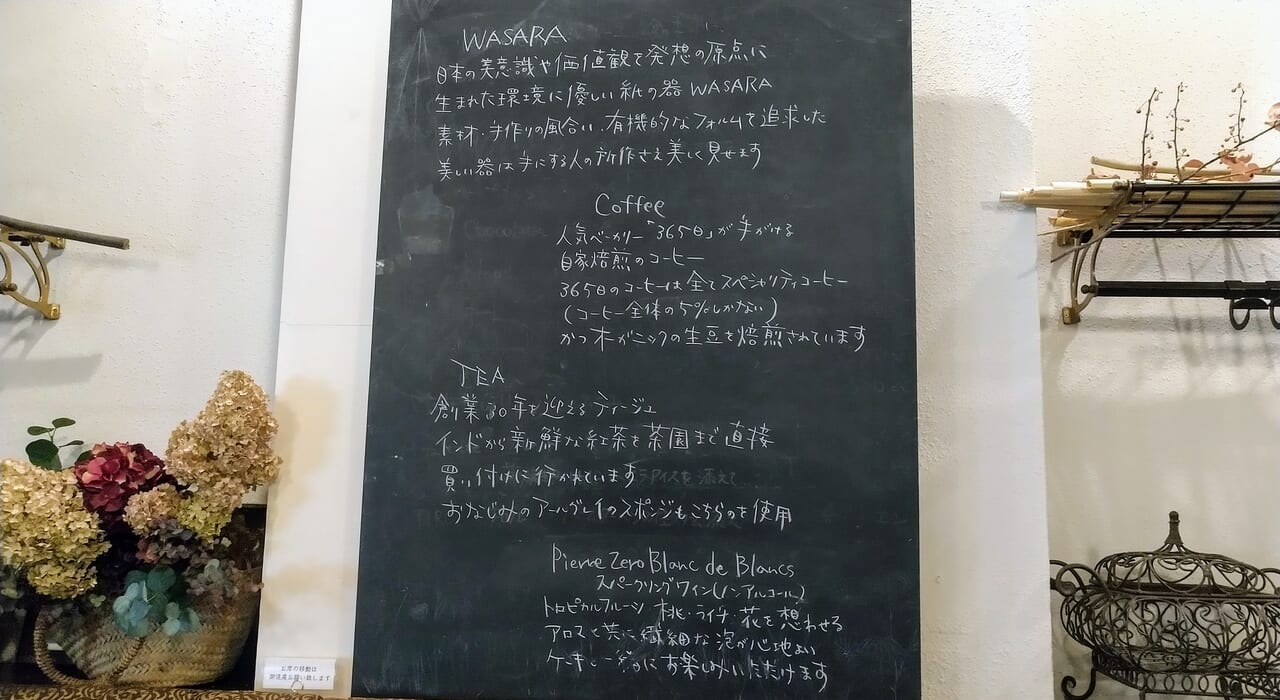 WASARA
日本の美意識や価値観を発想の原点に
生まれた環境に優しい紙の器 WASARA
素材・手作りの風合い、有機的なフォルムを追求した
美しい器は手にする人の所作さえ美しく見せます
Coffee
人気ベーカリー「365日」が手がける
自家焙煎のコーヒー
365日のコーヒーは全てスペシャリティコーヒー
(コーヒー全体の5%しかない)
かつオーガニックの生豆を焙煎されています
TEA
創業30年を迎えるティージュ
インドから新鮮な紅茶を茶園まで直接
買い付けに行かれています
おなじみのアールグレイのスポンジもこちらのを使用
Pierre Zero Blanc de Blancs
スパークリングワイン(ノンアルコール)
トロピカルフルーツ 桃・ライチ・花を想わせる
アロマと共に繊細な泡が心地よい
ケーキと一緒にお楽しみいただけます
お席の移動は
御遠慮お願い致します